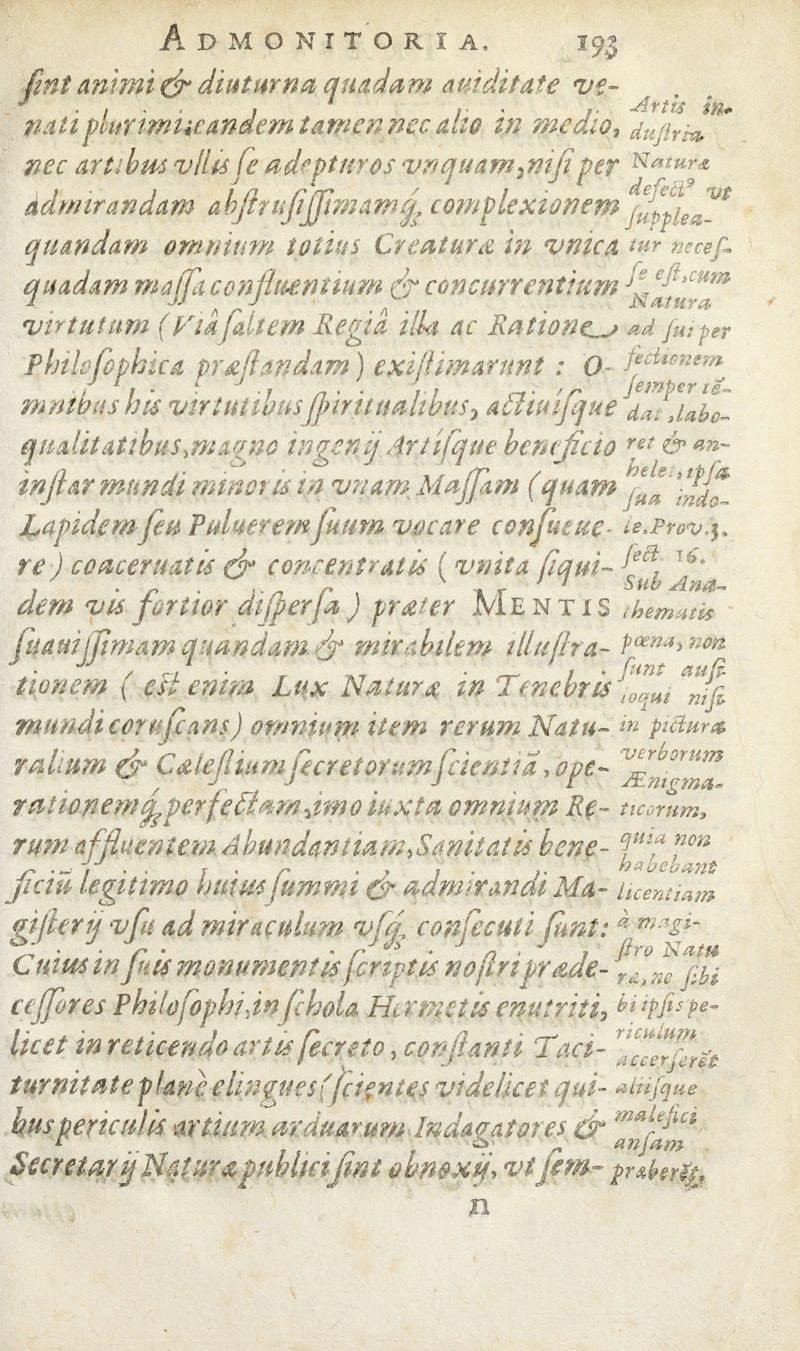 ADMONITORIA. 193
ſint animi & diuturna quadam auiditate ve-
nati plurimi: eandem tamen nec alio in medio,
nec artibus vllis ſe adepturos vnquam, niſi per
admirandam abſtruſiſſimamq́; complexionem
quandam omnium totius Creaturæ in vnica
quadam maſſa confluentium & concurrentium
virtutum (Viâ ſaltem Regiâ illa ac Ratione
Philoſophica præſtandam) exiſtimarunt : O-
mnibus his virtutibus ſpiritualibus, actiuíſque
qualitatibus, magno ingenij Artíſque beneficio
inſtar mundi minoris in vnam Maſſam (quam
Lapidem ſeu Puluerem ſuum vocare conſueue-
re) coaceruatis & concentratis (vnita ſiqui-
dem vis fortior diſperſa) præter MENTIS
ſuauiſſimam quandam & mirabilem illuſtra-
tionem (eſt enim Lux Naturæ in Tenebris
mundi coruſcans) omnium item rerum Natu-
ralium & Cæleſtium ſecretorum ſcientiã, ope-
rationemq́; perfectam, imo iuxta omnium Re-
rum affluentem Abundantiam, Sanitatis bene-
ficiũ legitimo huius ſummi & admirandi Ma-
giſterij vſu ad miraculum vſq́; conſecuti ſunt:
Cuius in ſuis monumentis ſcriptis noſtri præde-
ceſſores Philoſophi, in ſchola Hermetis enutriti,
licet in reticendo artis ſecreto, conſtanti Taci-
turnitate planè elingues (ſcientes videlicet qui-
bus periculis artium arduarum Indagatores &
Secretarij Naturæ publici ſint obnoxij, vt ſem-
Artis in-
duſtria
Naturæ
defectꝰ vt
ſupplea-
tur neceſ-
ſe eſt, cum
Natura
ad ſui per
fectionem
ſemper tẽ-
dat, labo-
ret & an-
helet, ipſa
ſua indo-
le. Prov. 3.
ſect 16.
Sub Ana-
thematis
pœna, non
ſunt auſi
loqui niſi
in pictura
verborum
Ænigma-
ticorum,
quia non
habebant
licentiam
à magi-
ſtro Natu
ræ, ne ſibi
bi ipſis pe-
riculum
accerſerẽt
aliiſque
malefici
anſam
præberẽt,
n